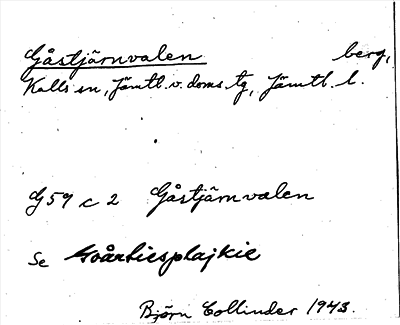 Gåstjärnvalen berg,
Kalls sn, Jämtl. v. doms. tg, Jämtl. l.
G 59 c 2 Gåstjärnvalen
Se
Björn Collinder 1943.